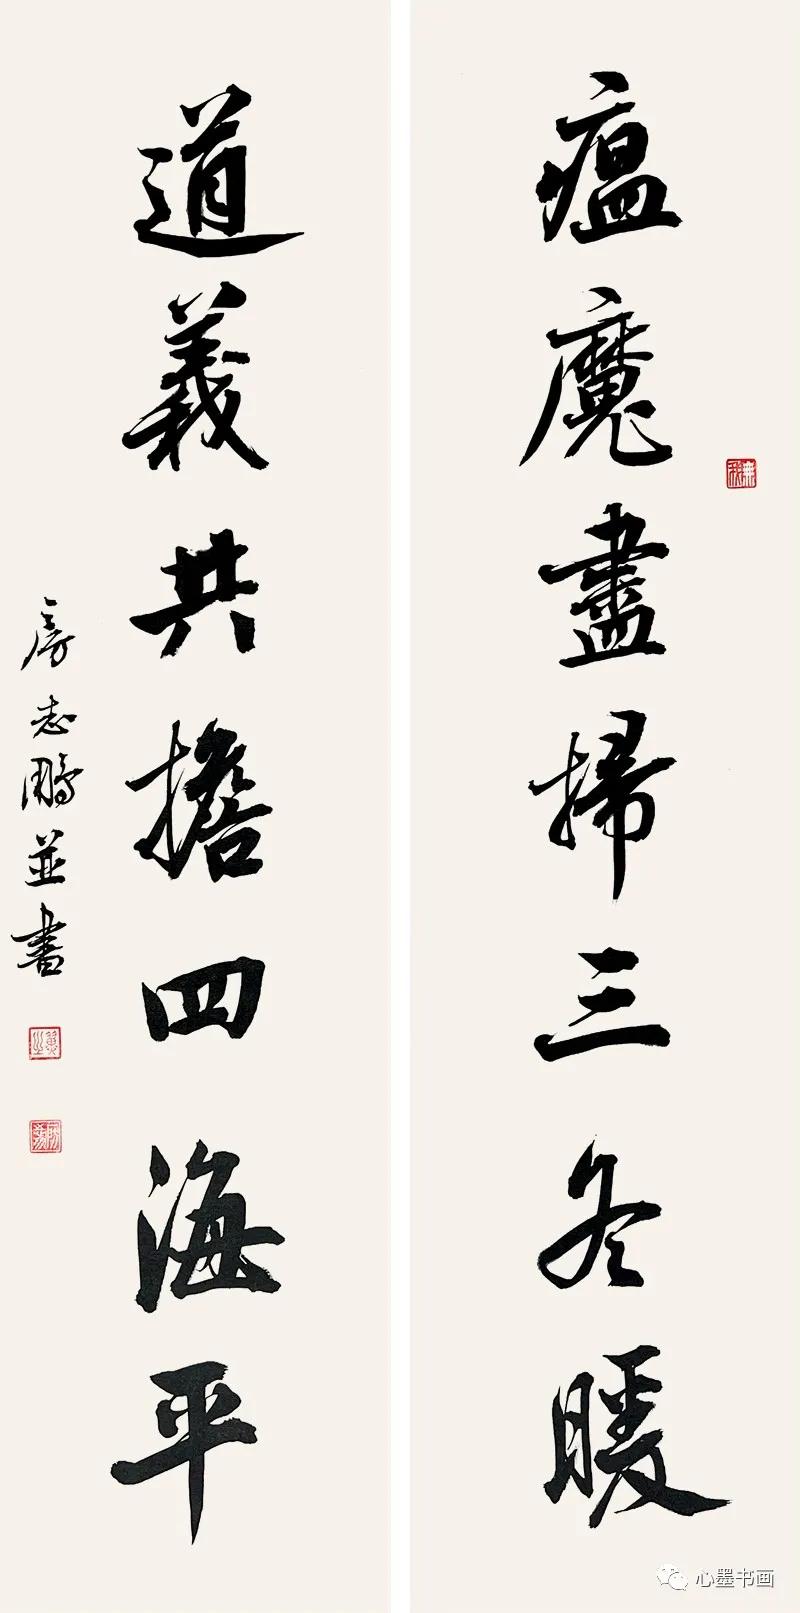 瘟魔盡掃三冬暖
道義共擔四海平
房志鵬並書
心墨书画